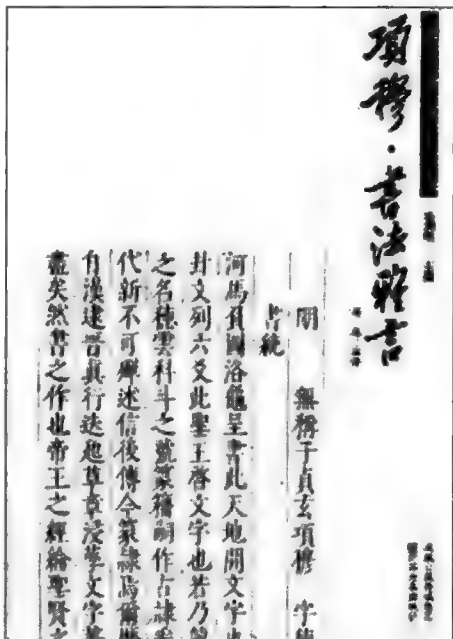 項穆·書法雅言
明 無稱子貞玄項穆 字純
書統
河馬負圖洛龜呈書此天地開文字也
卦文列六爻此聖王啓文字也若乃
之名穗雲科斗之號篆籀嗣作古隸
代新不可殫述信後傳今篆隸焉爾
自漢逮晉真行迭起草章浸孳文字菁
盡矣然書之作也帝王之經綸聖賢之